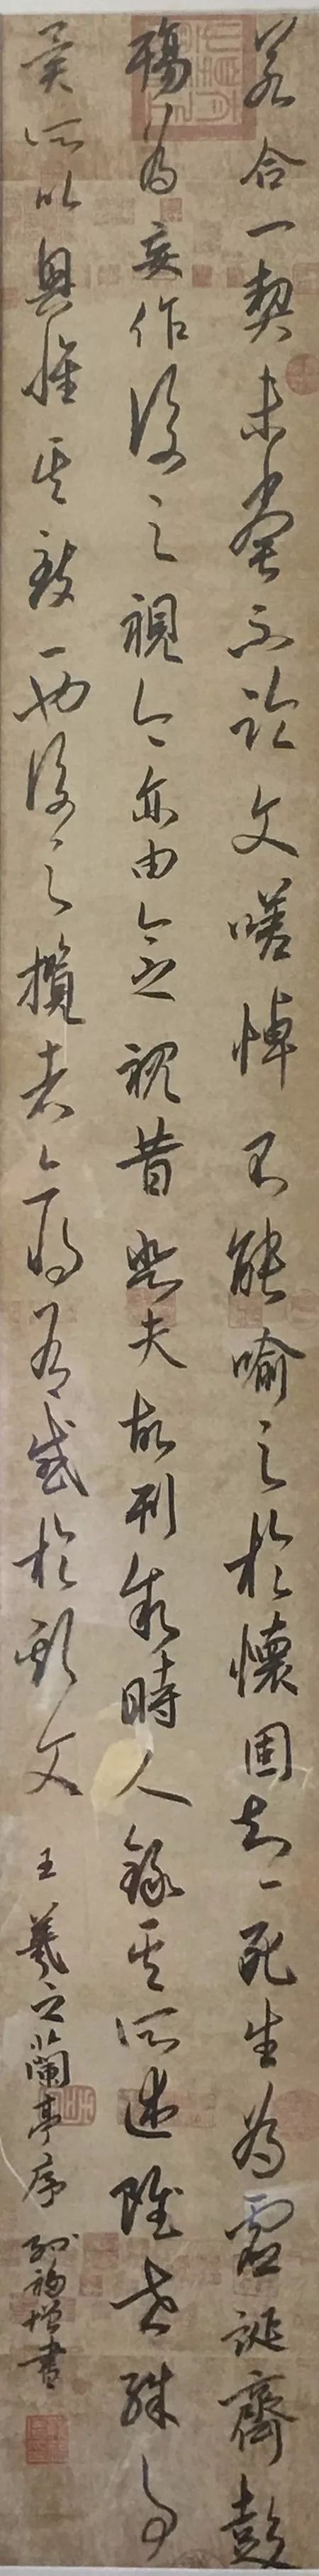 若合一契未嘗不臨文嗟悼不能喻之於懷固知一死生為虛誕齊彭
殤為妄作後之視今亦由今之視昔悲夫故列敘時人錄其所述雖世殊事
異所以興懷其致一也後之攬者亦將有感於斯文 王羲之蘭亭序 增書